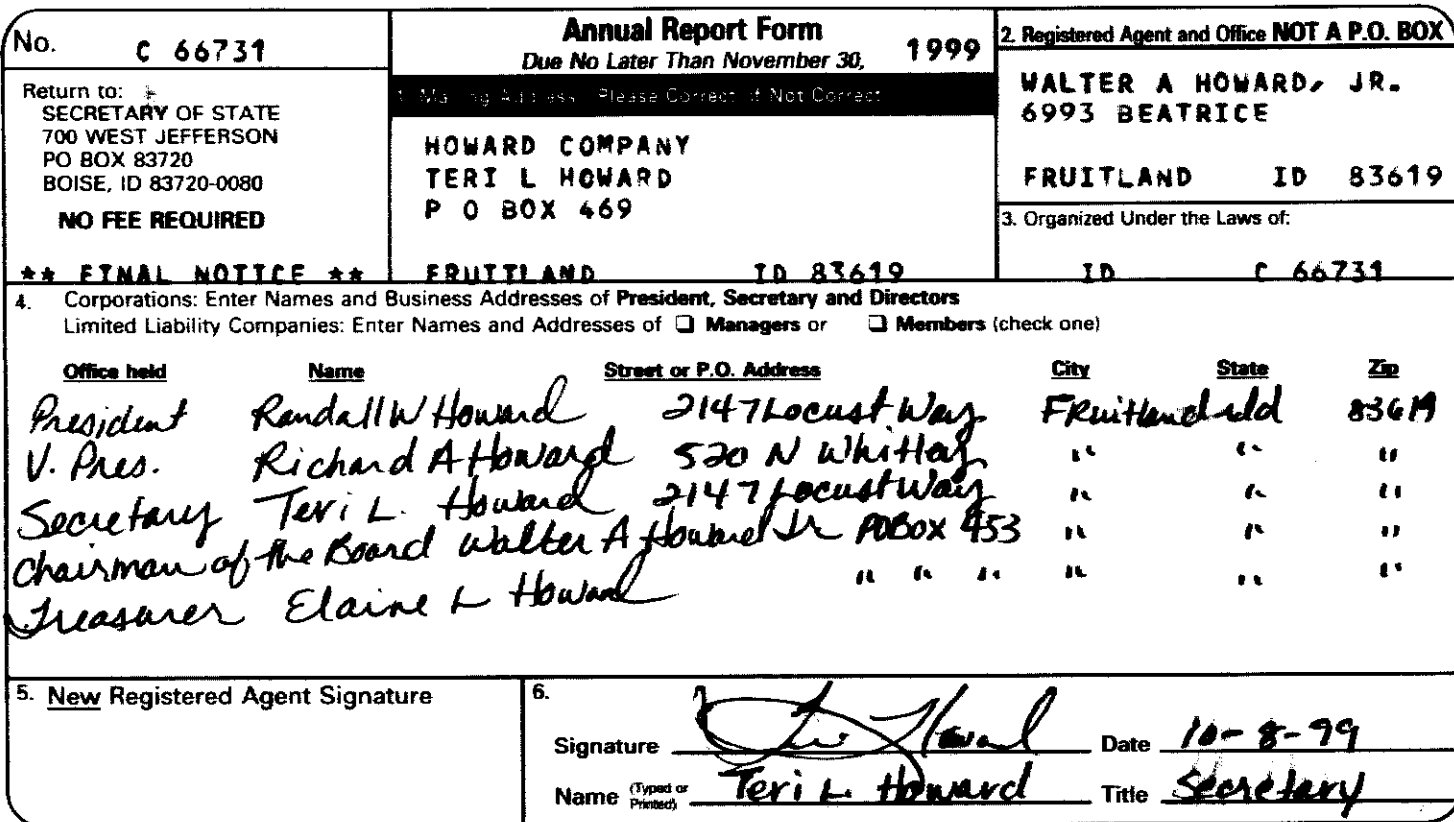 No. C 66731
Return to:
SECRETARY OF STATE
700 WEST JEFFERSON
PO BOX 83720
BOISE, ID 83720-0080
NO FEE REQUIRED
** FINAL NOTICE **
Annual Report Form
Due No Later Than November 30, 1999
1. Mailing Address: Please Correct if Not Correct
HOWARD COMPANY
TERI L HOWARD
P O BOX 469
FRUITLAND ID 83619
2. Registered Agent and Office NOT A P.O. BOX
WALTER A HOWARD, JR.
6993 BEATRICE
FRUITLAND ID 83619
3. Organized Under the Laws of:
ID C 66731
4. Corporations: Enter Names and Business Addresses of President, Secretary and Directors
Limited Liability Companies: Enter Names and Addresses of ❑ Managers or ❑ Members (check one)
Office held Name Street or P.O. Address City State Zip
President Randall W Howard 2147 Locust Way Fruitland Id 83619
V. Pres. Richard A Howard 520 N Whitley " " "
Secretary Teri L. Howard 2147 Locust Way " " "
Chairman of the Board Walter A Howard Jr PO Box 453 " " "
Treasurer Elaine L Howard " " " " " "
5. New Registered Agent Signature
6.
Signature Teri Howard Date 10-8-99
Name (Typed or Printed) Teri L. Howard Title Secretary